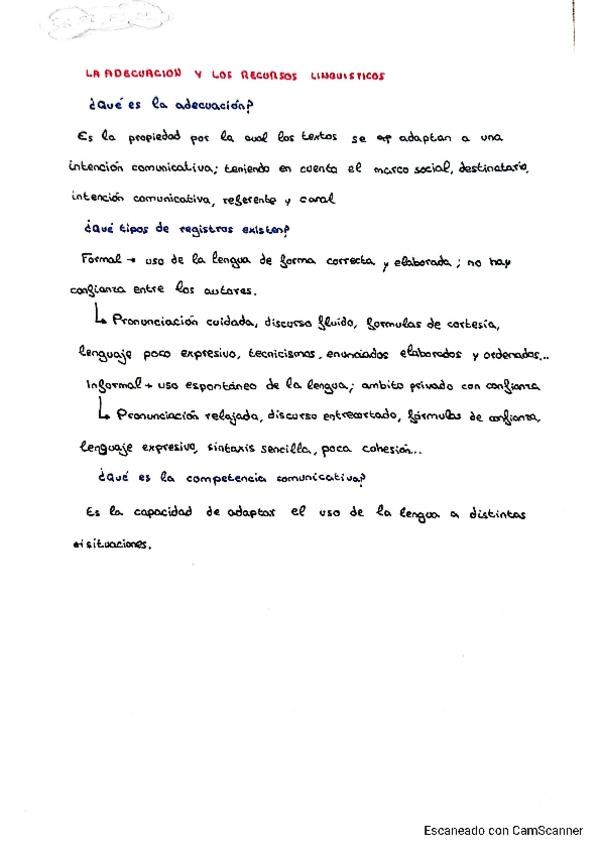 LA ADECUACION Y LOS RECURSOS LINGUISTICOS
¿Qué es la adecuación?
Es la propiedad por la cual los textos se adaptan a una
intención comunicativa; teniendo en cuenta el marco social, destinatario,
intención comunicativa, referente y canal
¿Qué tipos de registros existen?
Formal → uso de la lengua de forma correcta y elaborada; no hay
confianza entre los autores.
↳ Pronunciación cuidada, discurso fluido, formulas de cortesía,
lenguaje poco expresivo, tecnicismos, enunciados elaborados y ordenados...
Informal → uso espontáneo de la lengua; ambito privado con confianza
↳ Pronunciación relajada, discurso entrecortado, fórmulas de confianza,
lenguaje expresivo, sintaxis sencilla, poca cohesión...
¿Qué es la competencia comunicativa?
Es la capacidad de adaptar el uso de la lengua a distintas
situaciones.
Escaneado con CamScanner